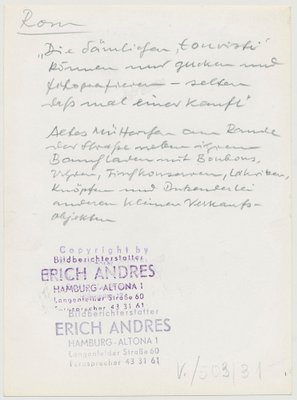 Rom
„Die dämlichen „touristi“
können nur gucken und
fotografieren – selten
daß mal einer kauft“
Altes Mütterchen am Rande
der Straße neben ihrem
mit Bonbons,
Uhren, Lakritzen,
Knöpfen und Dutzenderlei
anderen kleinen Verkaufs-
objekten
Copyright by
Bildberichterstatter
ERICH ANDRES
HAMBURG-ALTONA 1
Langenfelder Straße 60
Fernsprecher 43 31 61
Bildberichterstatter
ERICH ANDRES
HAMBURG-ALTONA 1
Langenfelder Straße 60
Fernsprecher 43 31 61
V./503/31